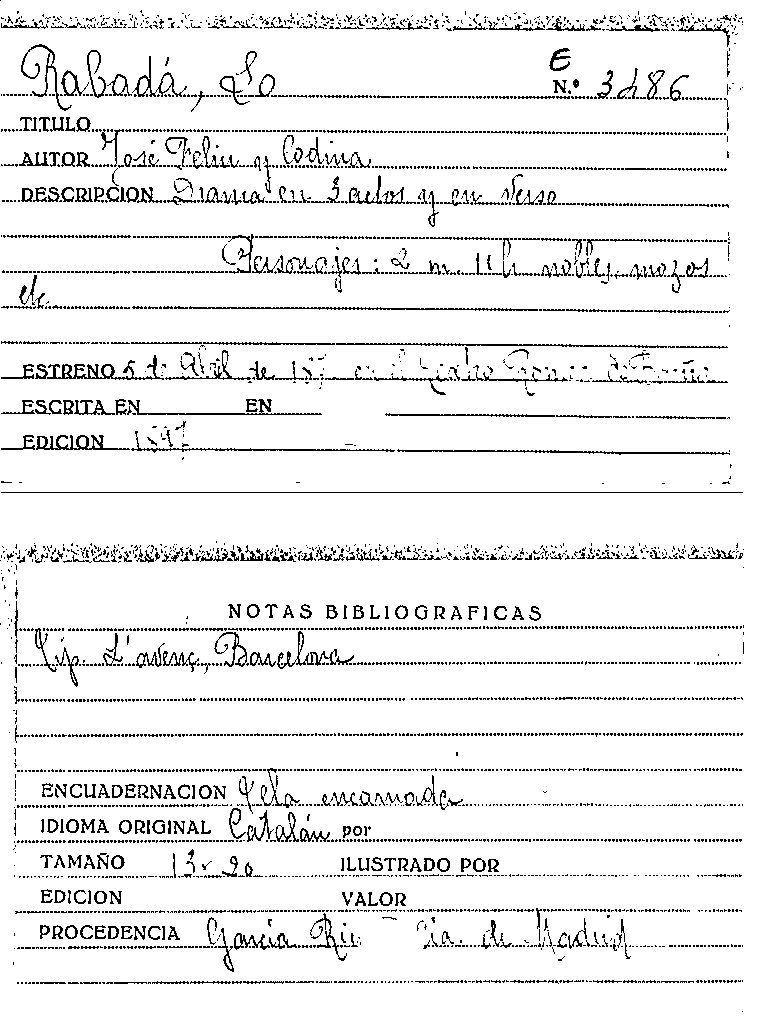 E
Rabadá, Lo N.º 3486
TITULO
AUTOR José Feliu y Codina
DESCRIPCION Drama en 3 actos y en verso
Personajes: 2 m. 11 h nobles, mozos
etc.
ESTRENO 5 de Abril de en el Teatro
ESCRITA EN EN
EDICION 1897
NOTAS BIBLIOGRAFICAS
Tip. L'avenç, Barcelona
ENCUADERNACION Tela encarnada
IDIOMA ORIGINAL Catalán por
TAMAÑO 13 x 20 ILUSTRADO POR
EDICION VALOR
PROCEDENCIA García Rico Cía. de Madrid